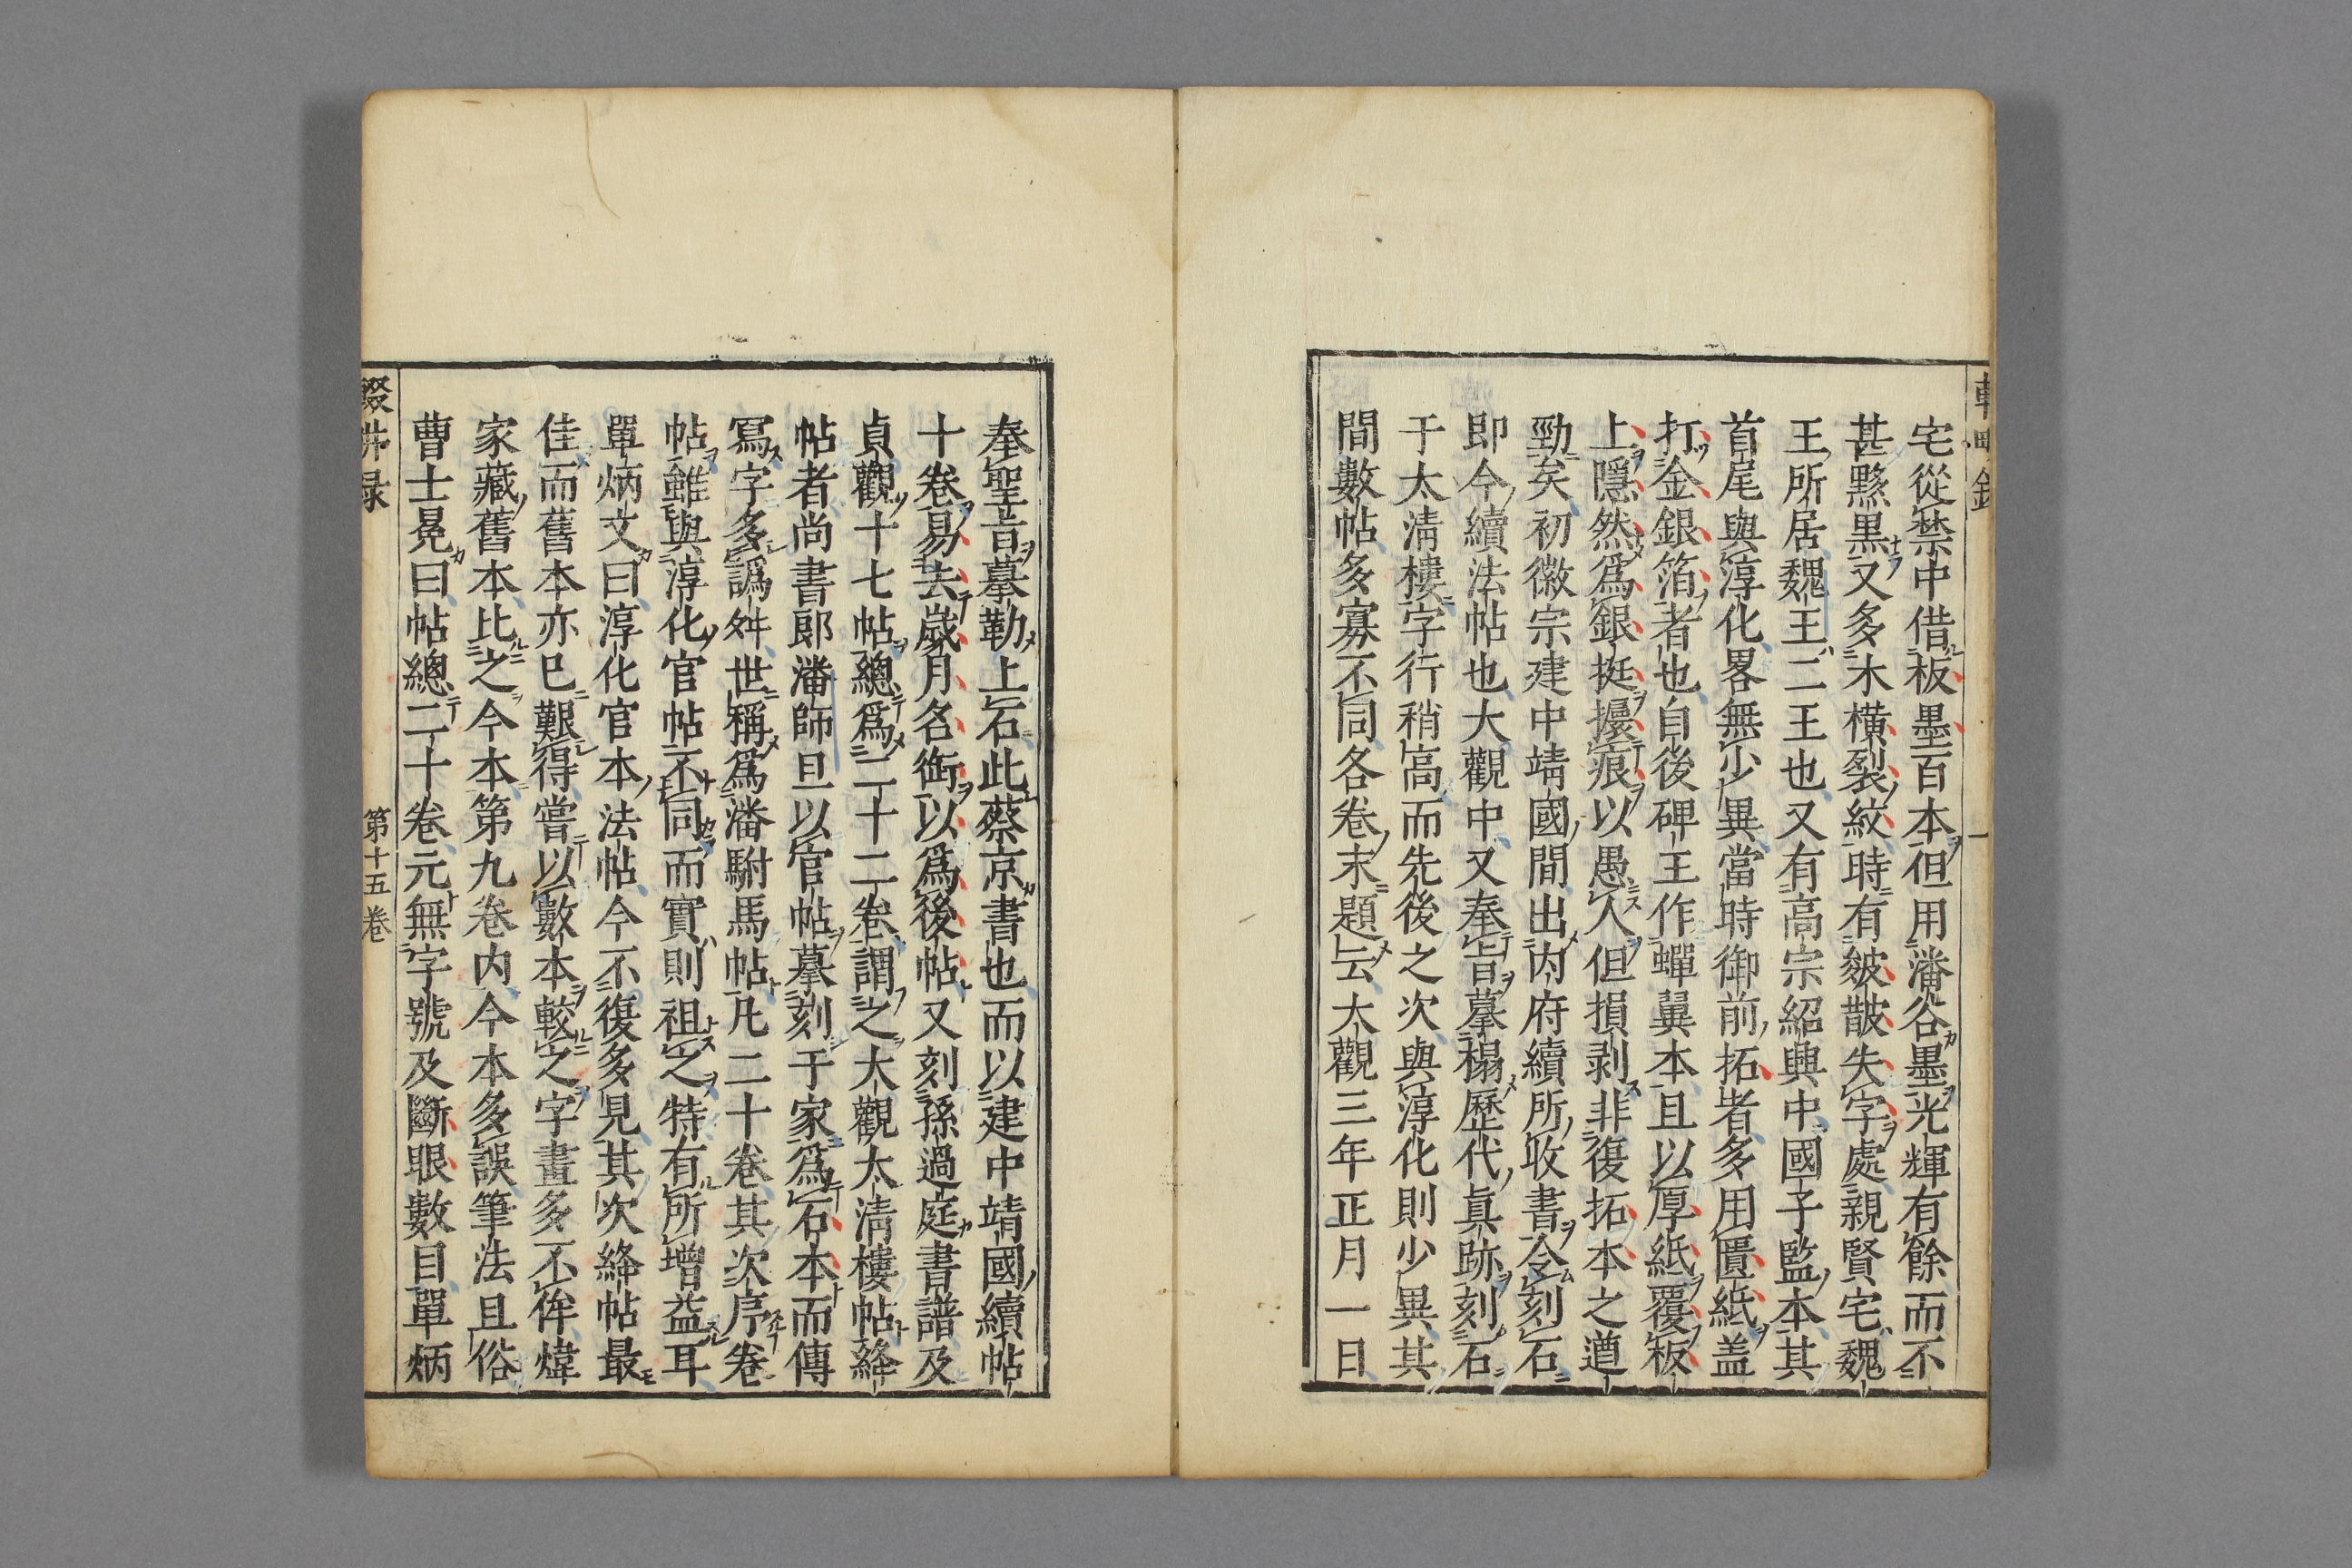 宅從禁中借板墨百本但用潘谷墨光輝有餘而不
甚黟黒又多木橫裂紋時有皴皵失字處親賢宅魏
王所居魏王二王也又有高宗紹興中國子監本其
首尾與淳化畧無少異當時御前拓者多用匱紙盖
打金銀箔者也自後碑王作蟬翼本且以厚紙覆板
上隱然爲銀挺擾痕以愚人但損剥非復拓本之遒
勁矣初徽宗建中靖國間出内府續所收書令刻石
即今續法帖也大觀中又奉旨摹榻歷代眞跡刻石
于太淸樓字行稍高而先後之次與淳化則少異其
間數帖多寡不同各卷末題云大觀三年正月一日
奉聖旨摹勒上石此蔡京書也而以建中靖國續帖
十卷易去歲月名銜以爲後帖又刻孫過庭書譜及
貞觀十七帖總爲二十二卷謂之大觀太淸樓帖絳
帖者尚書郎潘師旦以官帖摹刻于家爲石本而傳
寫字多譌舛世稱爲潘駙馬帖凡二十卷其次序卷
帖雖與淳化官帖不同而實則祖之特有所增益耳
單炳文曰淳化官本法帖今不復多見其次絳帖最
佳而舊本亦已艱得嘗以數本較之字畫多不侔煒
家藏舊本比之今本第九卷内今本多誤筆法且俗
曹士冕曰帖總二十卷元無字號及斷眼數目單炳
第十五卷